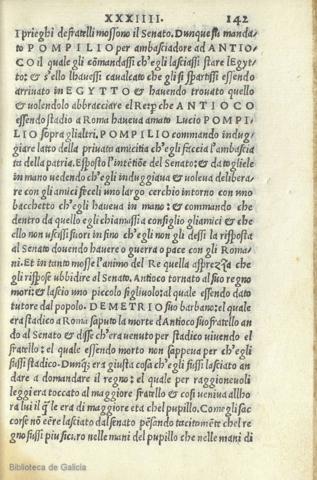 XXXIIII. 142
I prieghi de fratelli mossono il Senato. Dunque fu manda-
to POMPILIO per ambasciadore ad ANTIO-
CO il quale gli cõmandassi ch'egli lasciassi stare l'Egyt-
to: & s'ello l'havessi cavalcato che gli si spartissi essendo
arrivato in EGYTTO & havendo trovato quello
& volendolo abbracciare el Re: perche ANTIOCO
essendo stadio a Roma haveva amato Lucio POMPI-
LIO sopra gli altri, POMPILIO commando indug-
giare l'atto della privata amicitia ch'egli faceia l'ambascia
ta della patria. Esposto l'intẽtiõe del Senato: & datogliele
in mano vedendo ch'egli induggiava & voleva delibera-
re con gli amici feceli uno largo cerchio intorno con uno
bacchetto ch'egli haveva in mano: & commando che
dentro da quello egli chiamassi a consiglio gli amici & che
ello non uscissi fuori in fino ch'egli non gli dessi la risposta
al Senato dovendo havere o guerra o pace con gli Roma-
ni. Et in tanto mosse l'animo del Re quella asprezza che
gli rispose ubbidire al Senato. Antioco tornato al suo regno
mori: & lascio uno piccolo figliuolo: al quale essendo dato
tutore dal popolo. DEMETRIO suo barbano: el quale
era stadico a Roma saputo la morte d'Antioco suo fratello an
do al Senato & disse ch'era venuto per stadico vivendo el
fratello: el quale essendo morto non sappeva per ch'egli
fussi stadico. Dunq; era giusta cosa ch'egli fussi lasciato an
dare a domandare il regno: el quale per raggionevoli
leggi era toccato al maggiore fratello & cosi veniva allho
ra lui il q̃le era di maggiore eta che'l pupillo. Come gli s'ac
corse nõ eẽre lasciato dal senato pẽsando tacitomẽte che'l re
gno fussi piu sicuro nelle mani del pupillo che nelle mani di
Biblioteca de Galicia